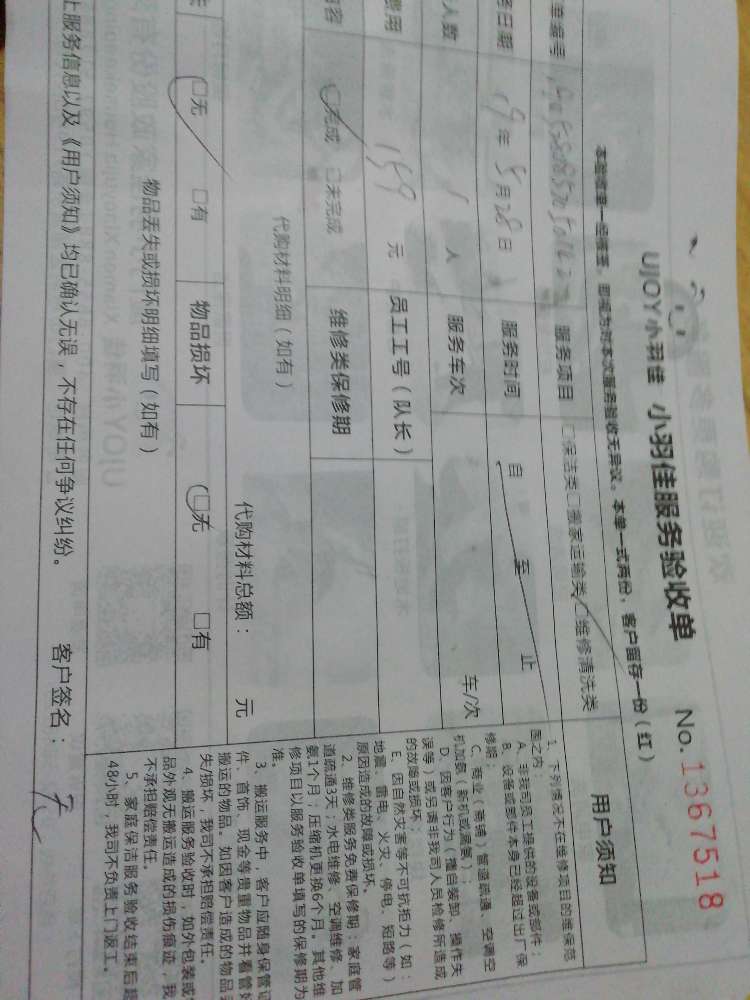 UJOY小羽佳 小羽佳服务验收单 No.1367518
本单一式两份，客户留存一份（红）
单编号
服务项目 □保洁类□搬家运输类□维修清洗类
日期 19年5月28日
服务时间 自 至 止
人数 1人
服务车次 车/次
费用 159元
员工工号（队长）
内容 □完成 □未完成
维修类保修期
代购材料明细（如有）
代购材料总额： 元
□无 □有
物品损坏
□无 □有
物品丢失或损坏明细填写（如有）
上服务信息以及《用户须知》均已确认无误，不存在任何争议纠纷。
客户签名：
用户须知
1、下列情况不在维修项目的维保范
围之内：
A、非我司员工提供的设备或部件；
B、设备或部件本身已经超过出厂保
修期；
C、商业（商铺）管道疏通、空调空
机加氨（新机或漏氨）；
D、因客户行为（擅自装卸、操作失
误等）或另请非我司人员检修所造成
的故障或损坏；
E、因自然灾害等不可抗拒力（如：
地震、雷电、火灾、停电、短路等）
原因造成的故障或损坏。
2、维修类服务免费保修期：家庭管
道疏通3天；水电维修、空调维修、加
氨1个月；压缩机更换6个月。其他维
修项目以服务验收单填写的保修期为
准。
3、搬运服务中，客户应随身保管证
件、首饰、现金等贵重物品并看管好
搬运的物品。如因客户造成的物品丢
失/损坏，我司不承担赔偿责任。
4、搬运服务验收时，如外包装或
品外观无搬运造成的损伤痕迹，我
不承担赔偿责任。
5、家庭保洁服务验收结束后超
48小时，我司不负责上门返工。